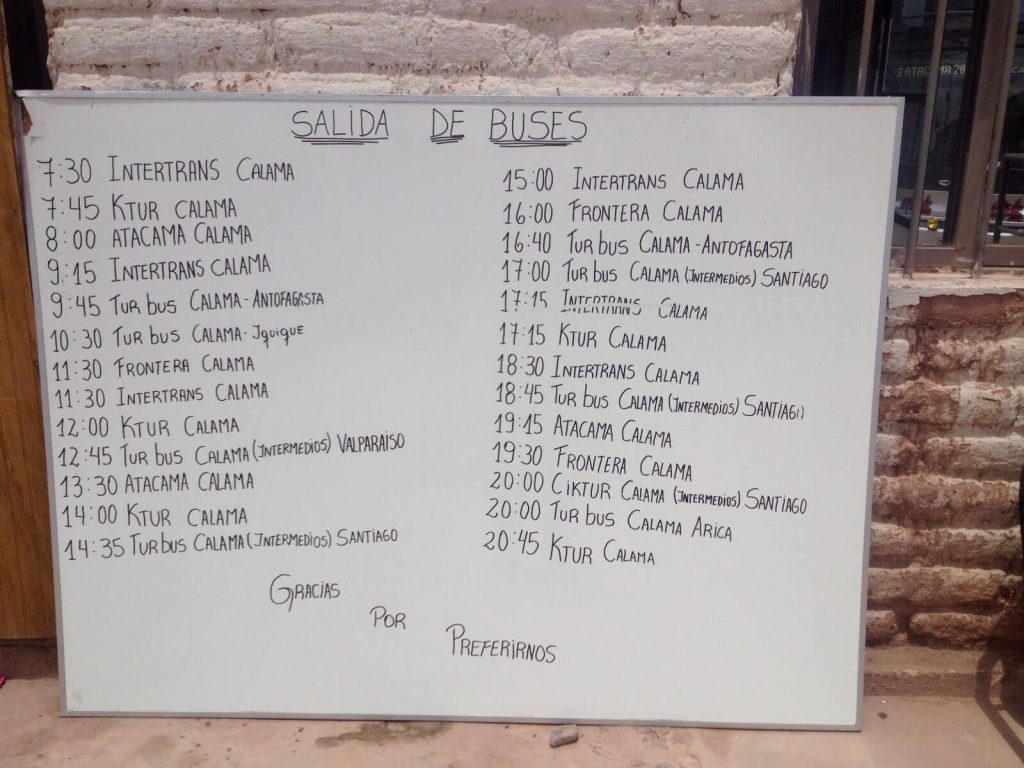 SALIDA DE BUSES
7:30 INTERTRANS CALAMA
7:45 KTUR CALAMA
8:00 ATACAMA CALAMA
9:15 INTERTRANS CALAMA
9:45 TUR BUS CALAMA - ANTOFAGASTA
10:30 TUR BUS CALAMA - Iquique
11:30 FRONTERA CALAMA
11:30 INTERTRANS CALAMA
12:00 KTUR CALAMA
12:45 TUR BUS CALAMA (INTERMEDIOS) VALPARAISO
13:30 ATACAMA CALAMA
14:00 KTUR CALAMA
14:35 TUR BUS CALAMA (INTERMEDIOS) SANTIAGO
15:00 INTERTRANS CALAMA
16:00 FRONTERA CALAMA
16:40 TUR BUS CALAMA - ANTOFAGASTA
17:00 TUR BUS CALAMA (INTERMEDIOS) SANTIAGO
17:15 INTERTRANS CALAMA
17:15 KTUR CALAMA
18:30 INTERTRANS CALAMA
18:45 TUR BUS CALAMA (INTERMEDIOS) SANTIAGO
19:15 ATACAMA CALAMA
19:30 FRONTERA CALAMA
20:00 CIKTUR CALAMA (INTERMEDIOS) SANTIAGO
20:00 TUR BUS CALAMA ARICA
20:45 KTUR CALAMA
GRACIAS
POR
PREFERIRNOS